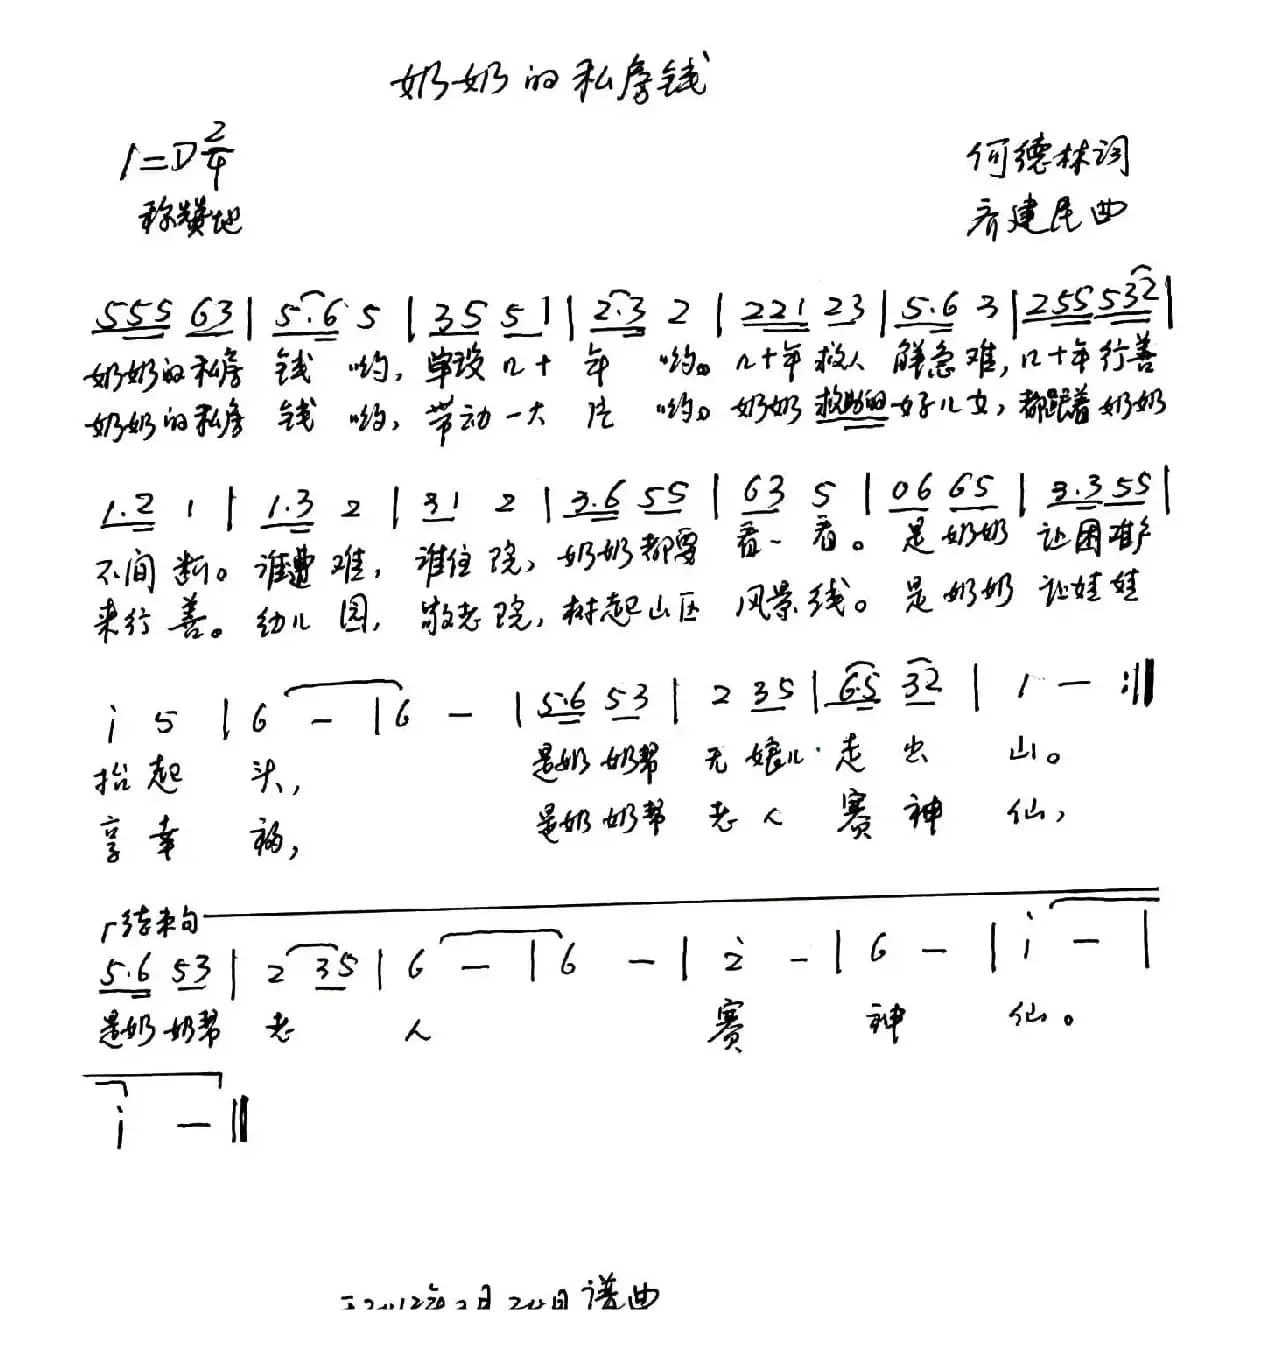 奶奶的私房钱
1=D 2/4
何德林词
称赞地
齐建民曲
555 63 | 5.6 5 | 35 51 | 2.3 2 | 221 23 | 5.6 3 | 255 532 |
奶奶的私房 钱 哟, 单设几十 年 哟。 几十年救人 解急难, 几十年行善
奶奶的私房 钱 哟, 带动一大 片 哟。 奶奶救助的好儿女, 都跟着奶奶
1.2 1 | 1.3 2 | 31 2 | 3.6 55 | 63 5 | 06 65 | 3.3 55 |
不间断。 谁遭难, 谁住院, 奶奶都要 看一看。 是奶奶 让困难户
来行善。 幼儿园, 敬老院, 树起山区 风景线。 是奶奶 让娃娃
i 5 | 6 - | 6 - | 5.6 53 | 2 35 | 6.5 32 | 1 - :||
抬起 头, 是奶奶帮 无娘儿 走出 山。
享幸 福, 是奶奶帮 老人 赛神 仙,
结束句
5.6 53 | 2 35 | 6 - | 6 - | 2̇ - | 6 - | i - |
是奶奶帮 老 人 赛 神 仙。
i - ||
2012年 月 日谱曲